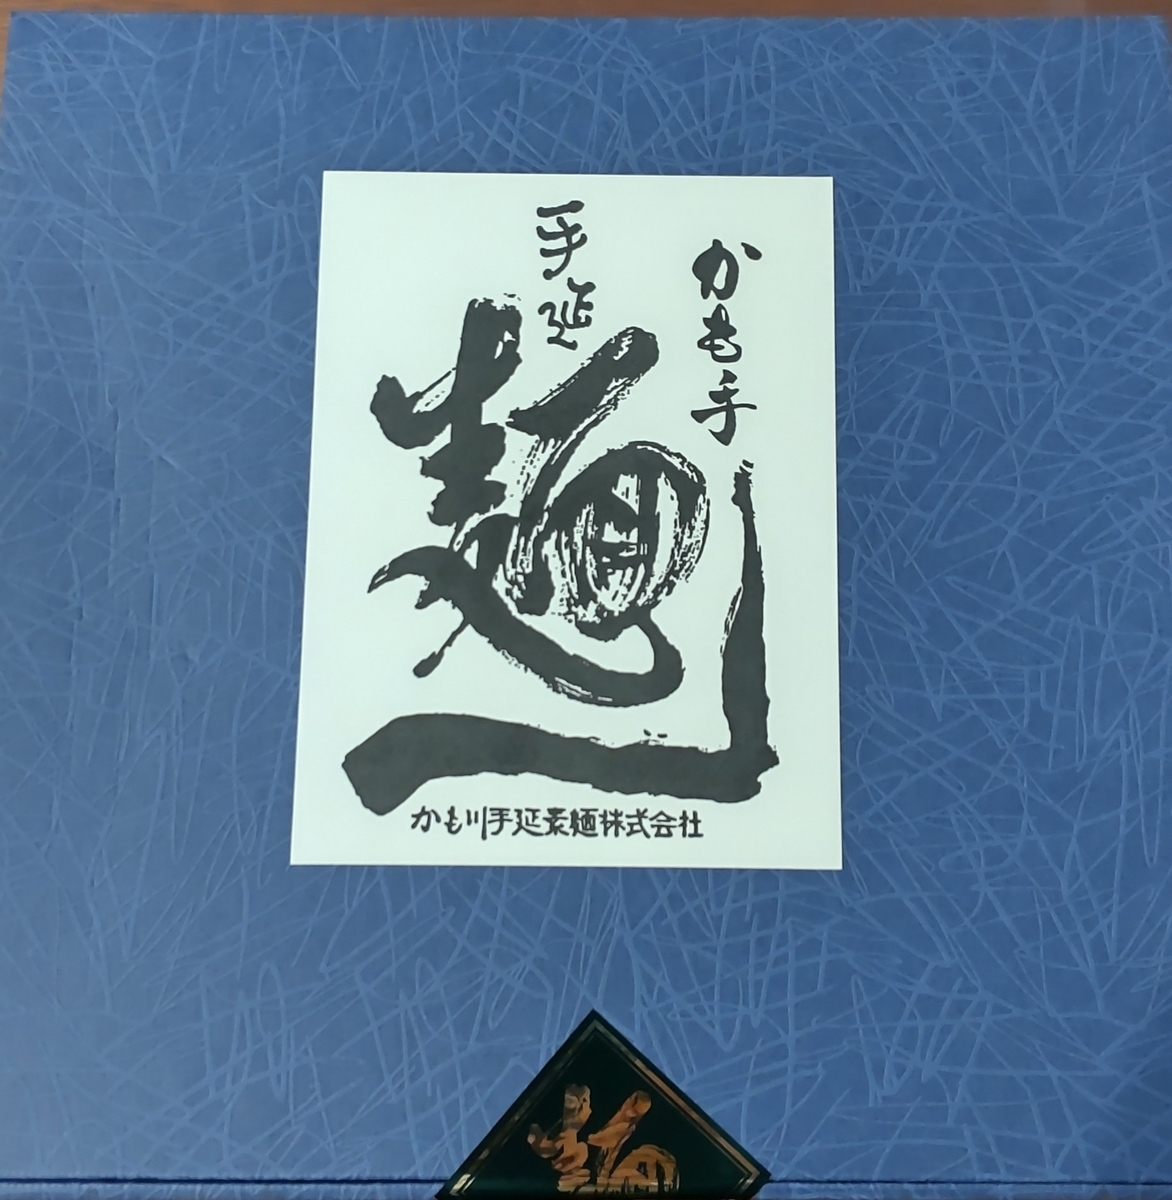 かも手
手延
麺
かも川手延素麺株式会社
麺